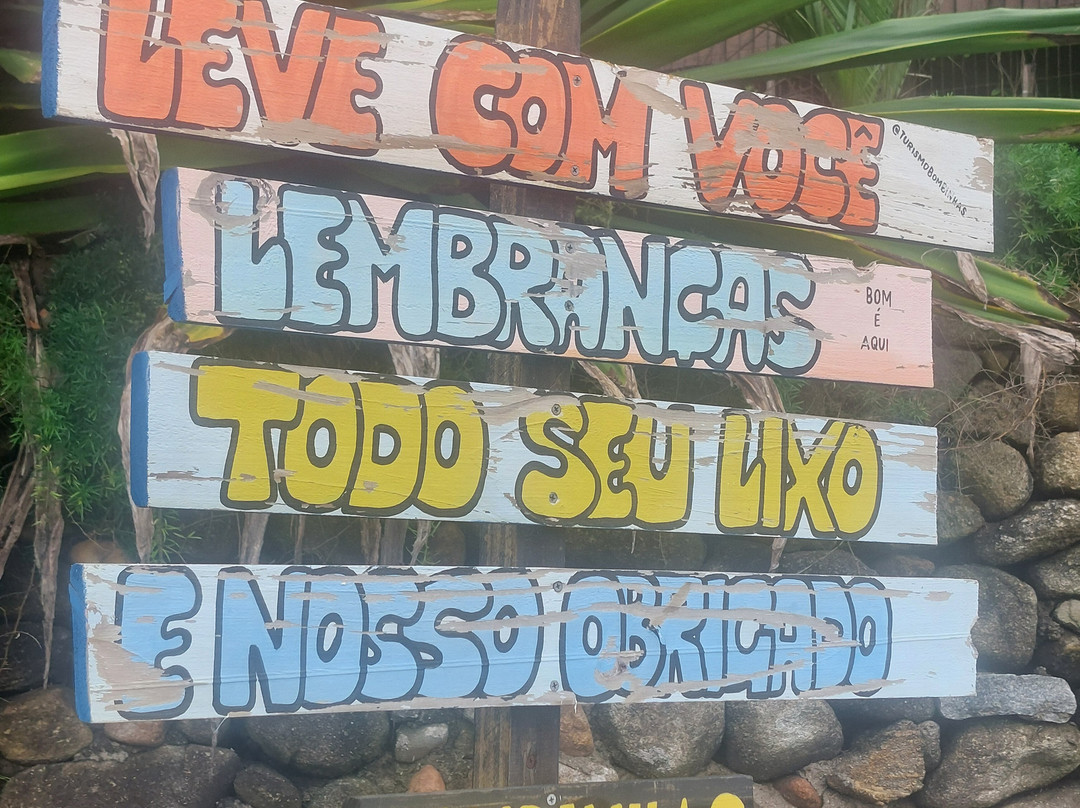 LEVE COM VOCÊ
@TURISMOBOMBINHAS
LEMBRANÇAS
BOM
É
AQUI
TODO SEU LIXO
E NOSSO OBRIGADO